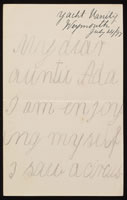 Yacht
Weymouth
July
My dear
auntie Ada
I am enjoy
ing myself
I saw a